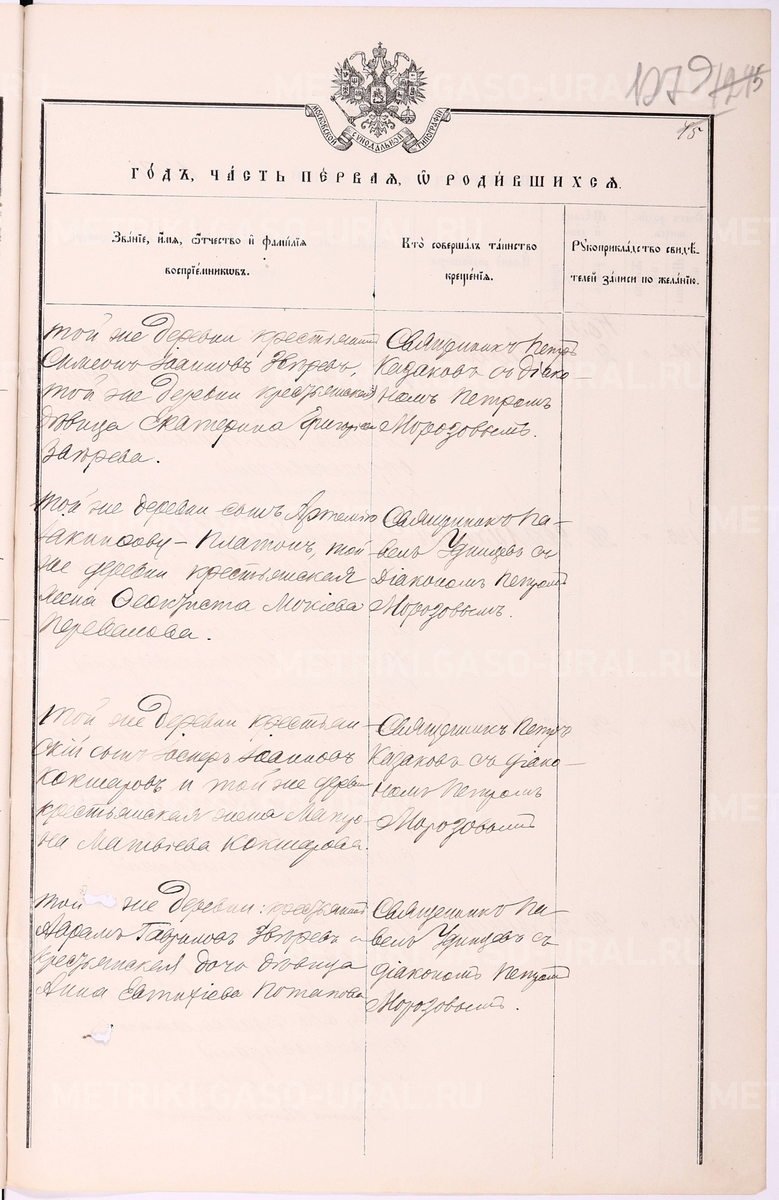 МОСКОВСКОЙ СѴНОДАЛЬНОЙ ТИПОГРАФІИ
1279
45
ГО́ДЪ, ЧА́СТЬ ПЕ́РВАЯ, Ѡ҆ РОДИ́ВШИХСЯ.
Зва́ніе, и҆́мя, ѻ҆́тчество и҆ фами́лія
воспріе́мниковъ.
Кто̀ соверша́лъ та́инство
креще́нія.
Рꙋкоприкла́дство свидѣ́-
телей за́писи по жела́нію.
той же деревни крестьянинъ
Симеонъ Іоанновъ
той же деревни крестьянская
дѣвица Екатерина Григорьева
Священникъ Петръ
Казаковъ съ діако-
номъ Петромъ
Морозовымъ.
той же деревни сынъ Артемію
Платонъ, той
же деревни крестьянская
жена Ѳеоктиста Мокіева
Перевалова.
Священникъ Па-
велъ Удинцовъ съ
Діакономъ Петромъ
Морозовымъ.
той же деревни крестьян-
скій сынъ Іоанновъ
Кокшаровъ и той же деревни
крестьянская жена Матро-
на Матвѣева Кокшарова.
Священникъ Петръ
Казаковъ съ діако-
номъ Петромъ
Морозовымъ
той же деревни крестьянинъ
Гавриловъ и
крестьянская дочь дѣвица
Анна Евтихіева Потапова
Священникъ Па-
велъ Удинцовъ съ
діакономъ Петромъ
Морозовымъ.
METRIKI.GASO-URAL.RU